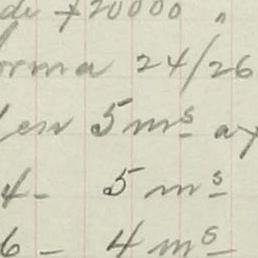 de $20000 "
orma 24/26
en 5 mS ay
4 - 5 mS
6 - 4 mS